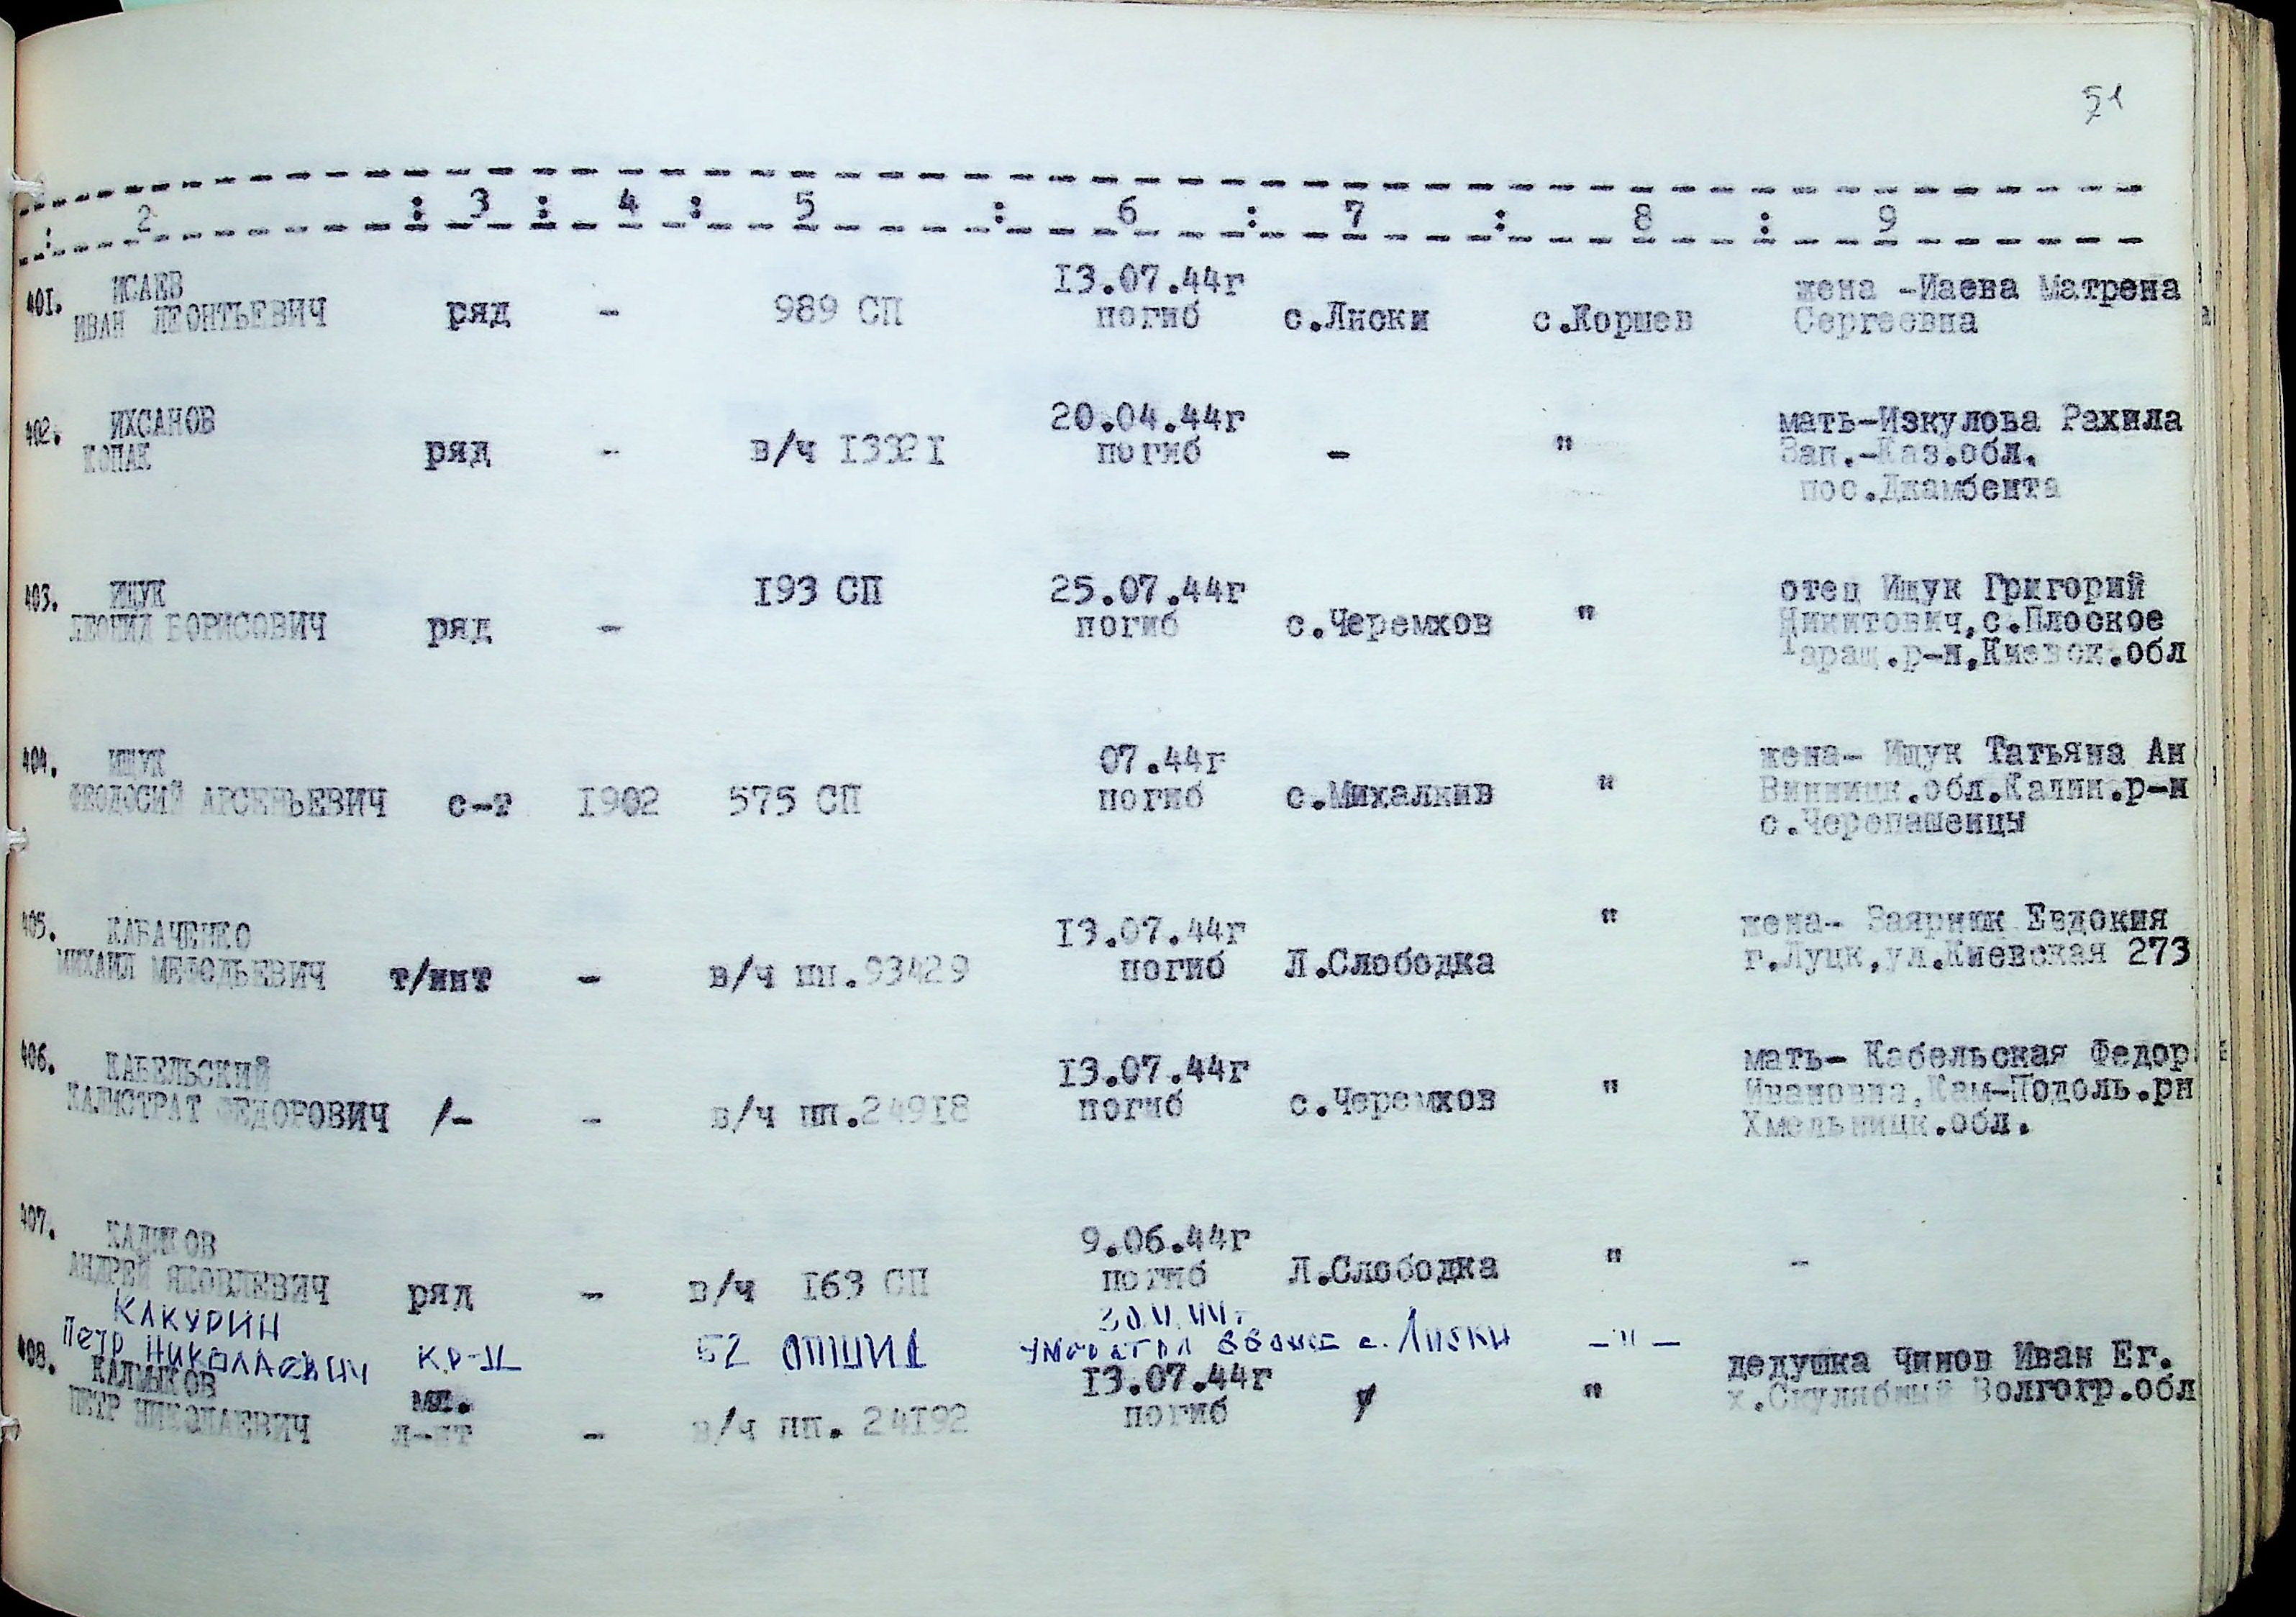 51
2 : 3 : 4 : 5 : 6 : 7 : 8 : 9
401. ИСАЕВ ИВАН ЛЕОНТЬЕВИЧ ряд - 989 СП 13.07.44г погиб с.Лиски с.Коршев жена -Иаева Матрена
Сергеевна
402. ИХСАНОВ КОПАК ряд - в/ч 13321 20.04.44г погиб - " мать-Изкулова Рахила
Зап.-Каз.обл.
пос.Джамбейта
403. ИЩУК ЛЕОНИД БОРИСОВИЧ ряд - 193 СП 25.07.44г погиб с.Черемхов " отец Ищук Григорий
Никитович,с.Плоское
Таращ.р-н,Киевск.обл
404. ИЩУК ФЕОДОСИЙ АРСЕНЬЕВИЧ с-т 1902 575 СП 07.44г погиб с.Михалкив " жена- Ищук Татьяна Ан
Винницк.обл.Калин.р-н
с.Черепашенцы
405. КАБАЧЕНКО МИХАИЛ МЕФОДЬЕВИЧ т/инт - в/ч пп.93429 13.07.44г погиб Л.Слободка " жена- Заярнюк Евдокия
г.Луцк,ул.Киевская 273
406. КАБЕЛЬСКИЙ КАЛИСТРАТ ФЕДОРОВИЧ /- - в/ч пп.24918 13.07.44г погиб с.Черемхов " мать- Кабельская Федор
Ивановна,Кам-Подоль.рн
Хмельницк.обл.
407. КАДИКОВ АНДРЕЙ ЯКОВЛЕВИЧ ряд - в/ч 163 СП 9.06.44г погиб Л.Слободка " -
КАКУРИН Петр НИКОЛАЕВИЧ КР-Ц 52 с. Лиски -"-
408. КАЛМЫКОВ ПЕТР НИКОЛАЕВИЧ мл. л-нт - в/ч пп. 24192 13.07.44г погиб " дедушка Чинов Иван Ег.
Волгогр.обл